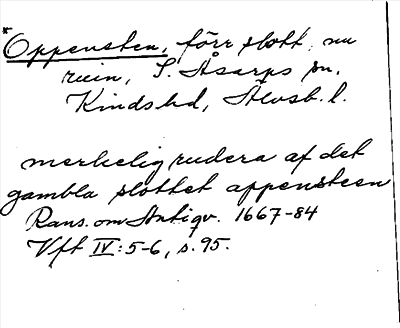 * Oppensten, förr slott, nu
ruin, S. Åsarps sn.
Kinds hd, Älvsb. l.
merkelig rudera af det
gambla slottet oppensteen
Rans. om Antiqv. 1667-84
Vft IV: 5-6, s. 95.